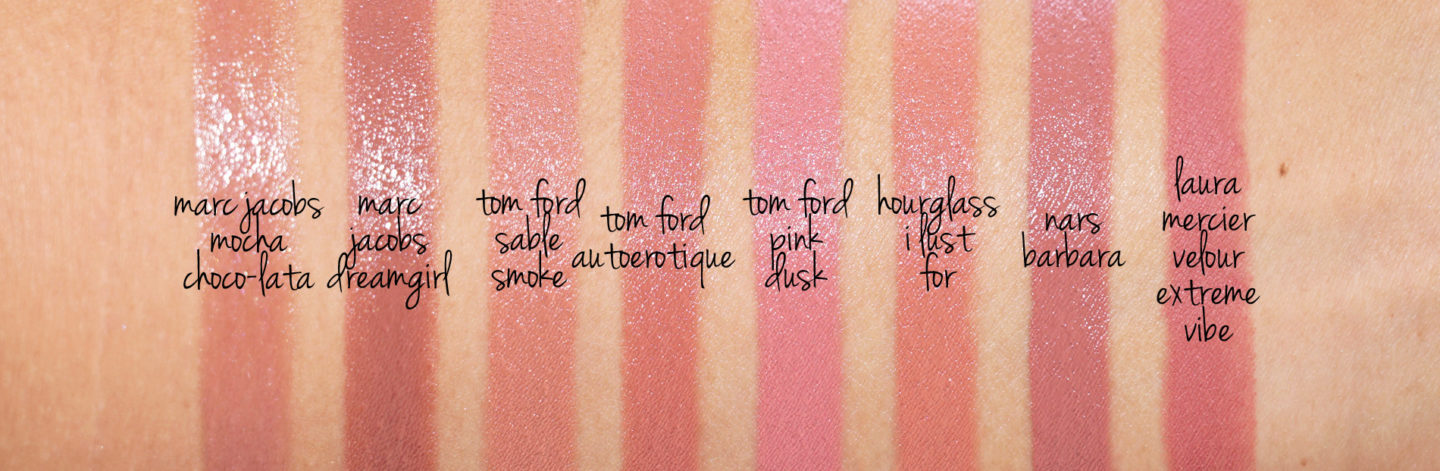 marc jacobs
mocha
choco-lata
marc
jacobs
dreamgirl
tom ford
sable
smoke
tom ford
autoerotique
tom ford
pink
dusk
hourglass
i lust
for
nars
barbara
laura
mercier
velour
extreme
vibe